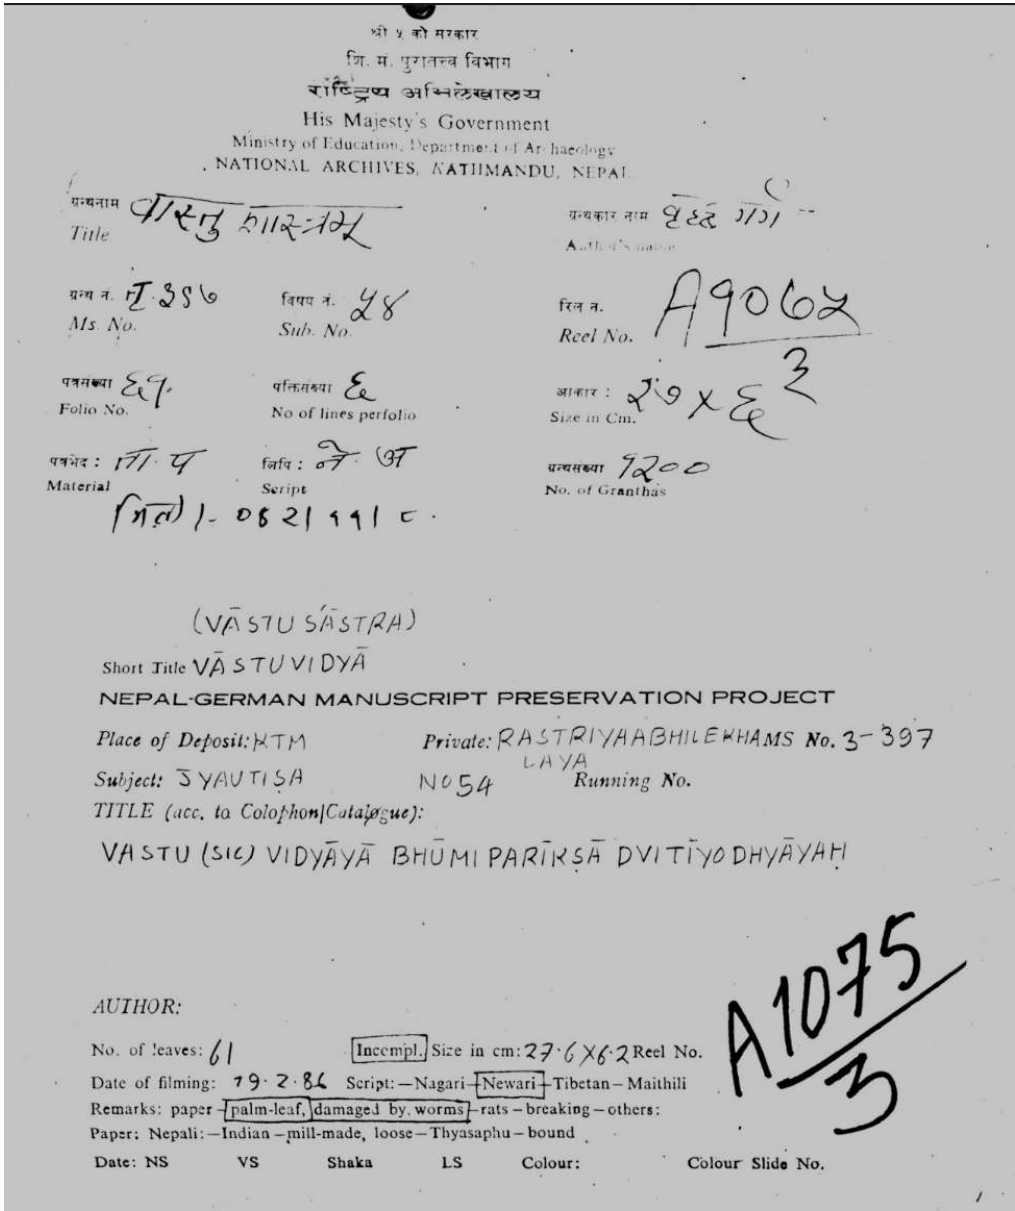 श्री ५ को सरकार
शि. मं. पुरातत्त्व विभाग
राष्ट्रिय अभिलेखालय
His Majesty's Government
Ministry of Education, Department of Archaeology
NATIONAL ARCHIVES, KATHMANDU, NEPAL
ग्रन्थनाम वास्तु शास्त्रम् ग्रन्थकार नाम
Title Author's name
ग्रन्थ नं. तृ. ३९७ विषय नं. ५४ रिल नं. A १०७५
Ms. No. Sub. No. Reel No. ३
पत्रसंख्या ६१. पंक्तिसंख्या ६ आकार : २७ x ६
Folio No. No of lines perfolio Size in Cm.
पत्रभेद : ता. प लिपि : ने. अ ग्रन्थसंख्या १२००
Material Script No. of Granthas
(VĀSTU ŚĀSTRA)
Short Title VĀSTUVIDYĀ
NEPAL-GERMAN MANUSCRIPT PRESERVATION PROJECT
Place of Deposit: KTM Private: RASTRIYAABHILEKHA MS No. 3-397
LAYA
Subject: JYAUTIṢA No 54 Running No.
TITLE (acc. to Colophon/Catalogue):
VASTU (SIC) VIDYĀYĀ BHŪMI PARĪKṢĀ DVITĪYODHYĀYAḤ
A 1075
3
AUTHOR:
No. of leaves: 61 Incompl. Size in cm: 27.6 X 6.2 Reel No.
Date of filming: 19.2.86 Script:—Nagari—Newari—Tibetan—Maithili
Remarks: paper—palm-leaf, damaged by worms—rats—breaking—others:
Paper: Nepali:—Indian—mill-made, loose—Thyasaphu—bound
Date: NS VS Shaka LS Colour: Colour Slide No.
1